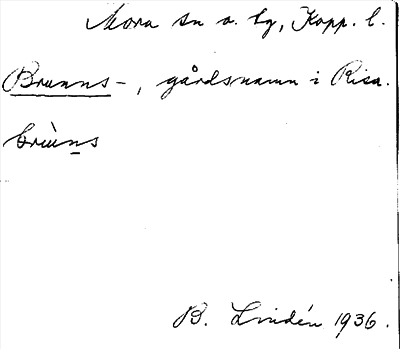 Mora sn o. tg, Kopp. l.
Brunns-, gårdsnamn i Risa.
brùns
B. Lindén 1936.